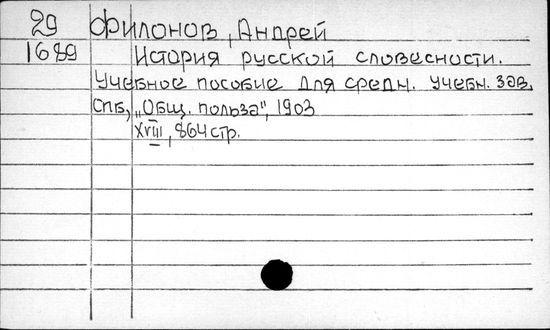 29 Филонов, Андрей
1689 История русской словесности.
Учебное пособие для средн. учебн. зав.
Спб, „Общ. польза", 1903
XVIII, 864 стр.